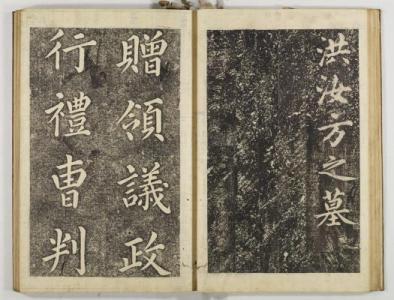 洪汝方之墓
贈領議政
行禮曺判